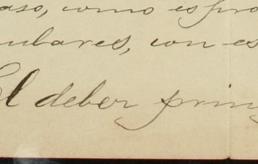 aso, como es pro
ulares, con es
El deber prin